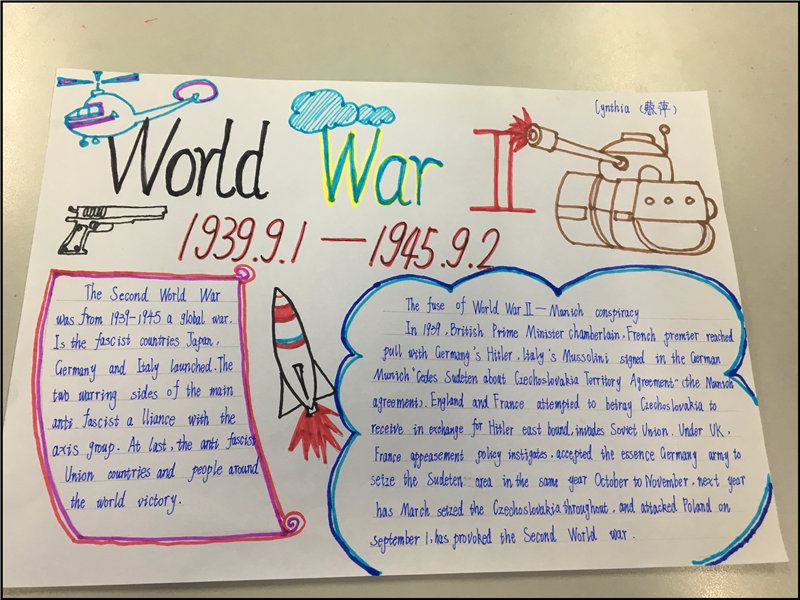 Cynthia (慜萍)
World War II
1939.9.1 — 1945.9.2
The Second World War
was from 1939-1945 a global war.
Is the fascist countries Japan,
Germany and Italy launched. The
two warring sides of the main
anti fascist a lliance with the
axis group. At last, the anti fascist
Union countries and people around
the world victory.
The fuse of World War II — Manich conspiracy
In 1939, British Prime Minister chamberlain, French premier reached
pull with Germany's Hitler, Italy's Mussolini signed in the German
Munich "Cedes Sudeten about Czechoslovakia Territory Agreement" (the Munich
agreement). England and France attempted to betray Czechoslovakia to
receive in exchange for Hitler east bound, invades Soviet Union. Under UK,
France appeasement policy instigates, accepted the essence Germany army to
seize the Sudeten area in the same year October to November, next year
has March seized the Czechoslovakia throughout, and attacked Poland on
september 1, has provoked the Second World war.